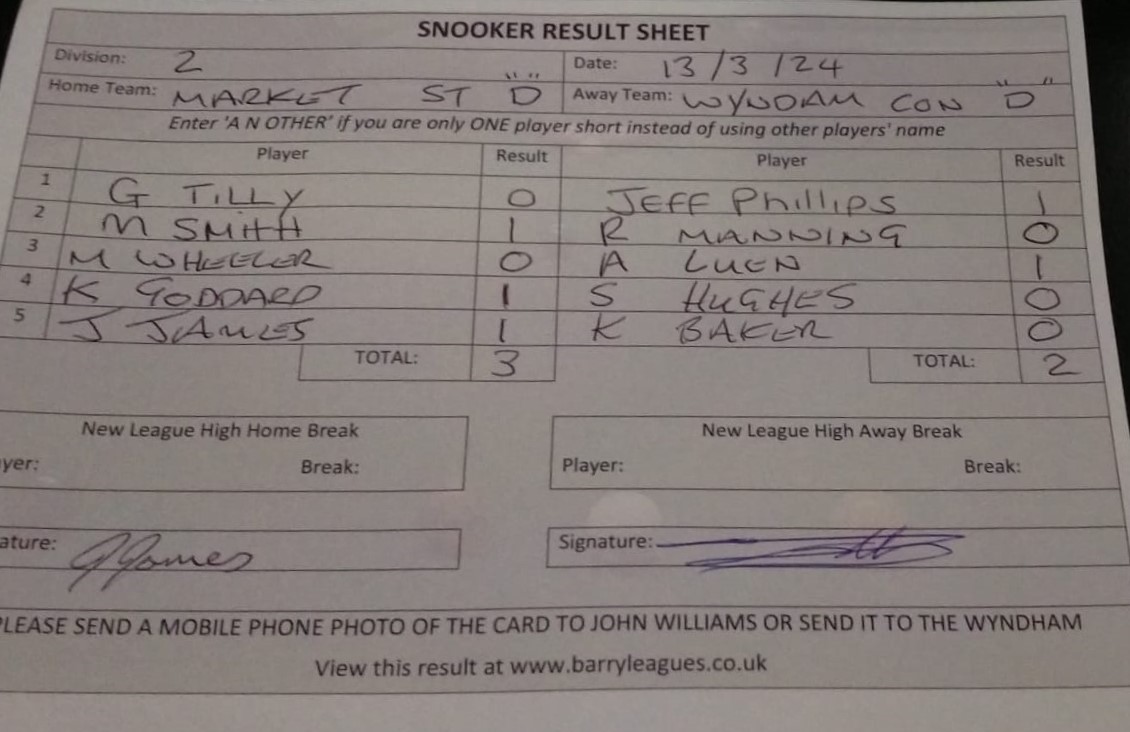 SNOOKER RESULT SHEET
Division: 2 Date: 13/3/24
Home Team: MARKET ST "D" Away Team: WYNDAM CON "D"
Enter 'A N OTHER' if you are only ONE player short instead of using other players' name
Player Result Player Result
1 G TILLY 0 JEFF PhillIPS 1
2 M SMITH 1 R MANNING 0
3 M WHEELER 0 A LUEN 1
4 K GODDARD 1 S HUGHES 0
5 J JAMES 1 K BAKER 0
TOTAL: 3 TOTAL: 2
New League High Home Break New League High Away Break
yer: Break: Player: Break:
ature: J James Signature:
PLEASE SEND A MOBILE PHONE PHOTO OF THE CARD TO JOHN WILLIAMS OR SEND IT TO THE WYNDHAM
View this result at www.barryleagues.co.uk